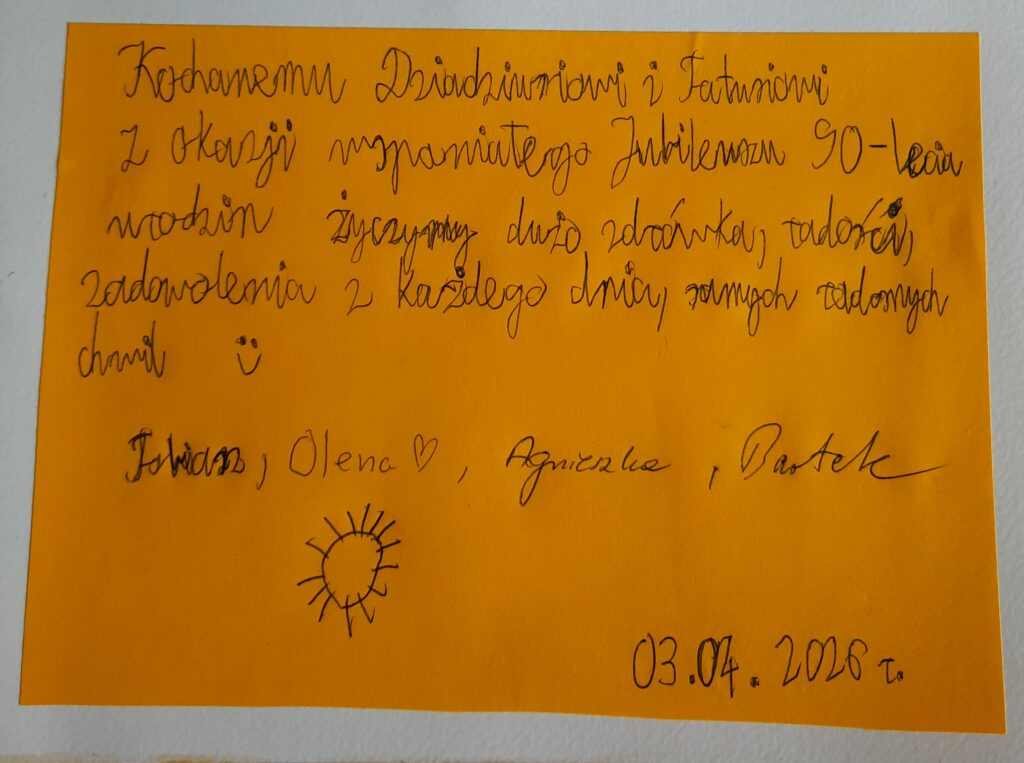 Kochanemu Dziadziusiowi i Tatusiowi
z okazji wspaniałego Jubileuszu 90-lecia
urodzin życzymy dużo zdrówka, radości,
zadowolenia z każdego dnia, samych radosnych
chwil
Tobiasz, Olena ♡, Agnieszka, Bartek
03.04.2026 r.